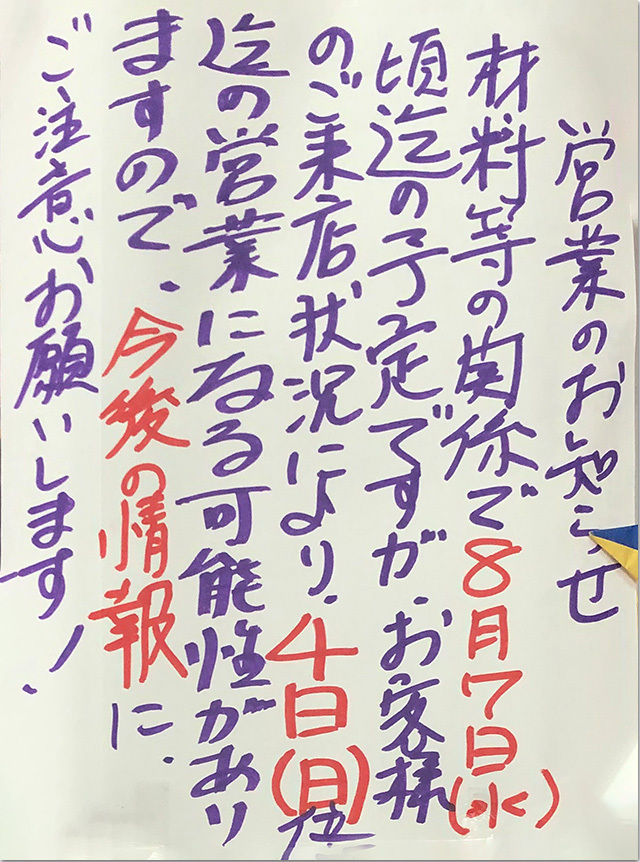 営業のお知らせ
材料等の関係で8月7日(水)
頃迄の予定ですが、お客様
のご来店状況により、4日(日)位
迄の営業になる可能性があり
ますので、今後の情報に、
ご注意お願いします!